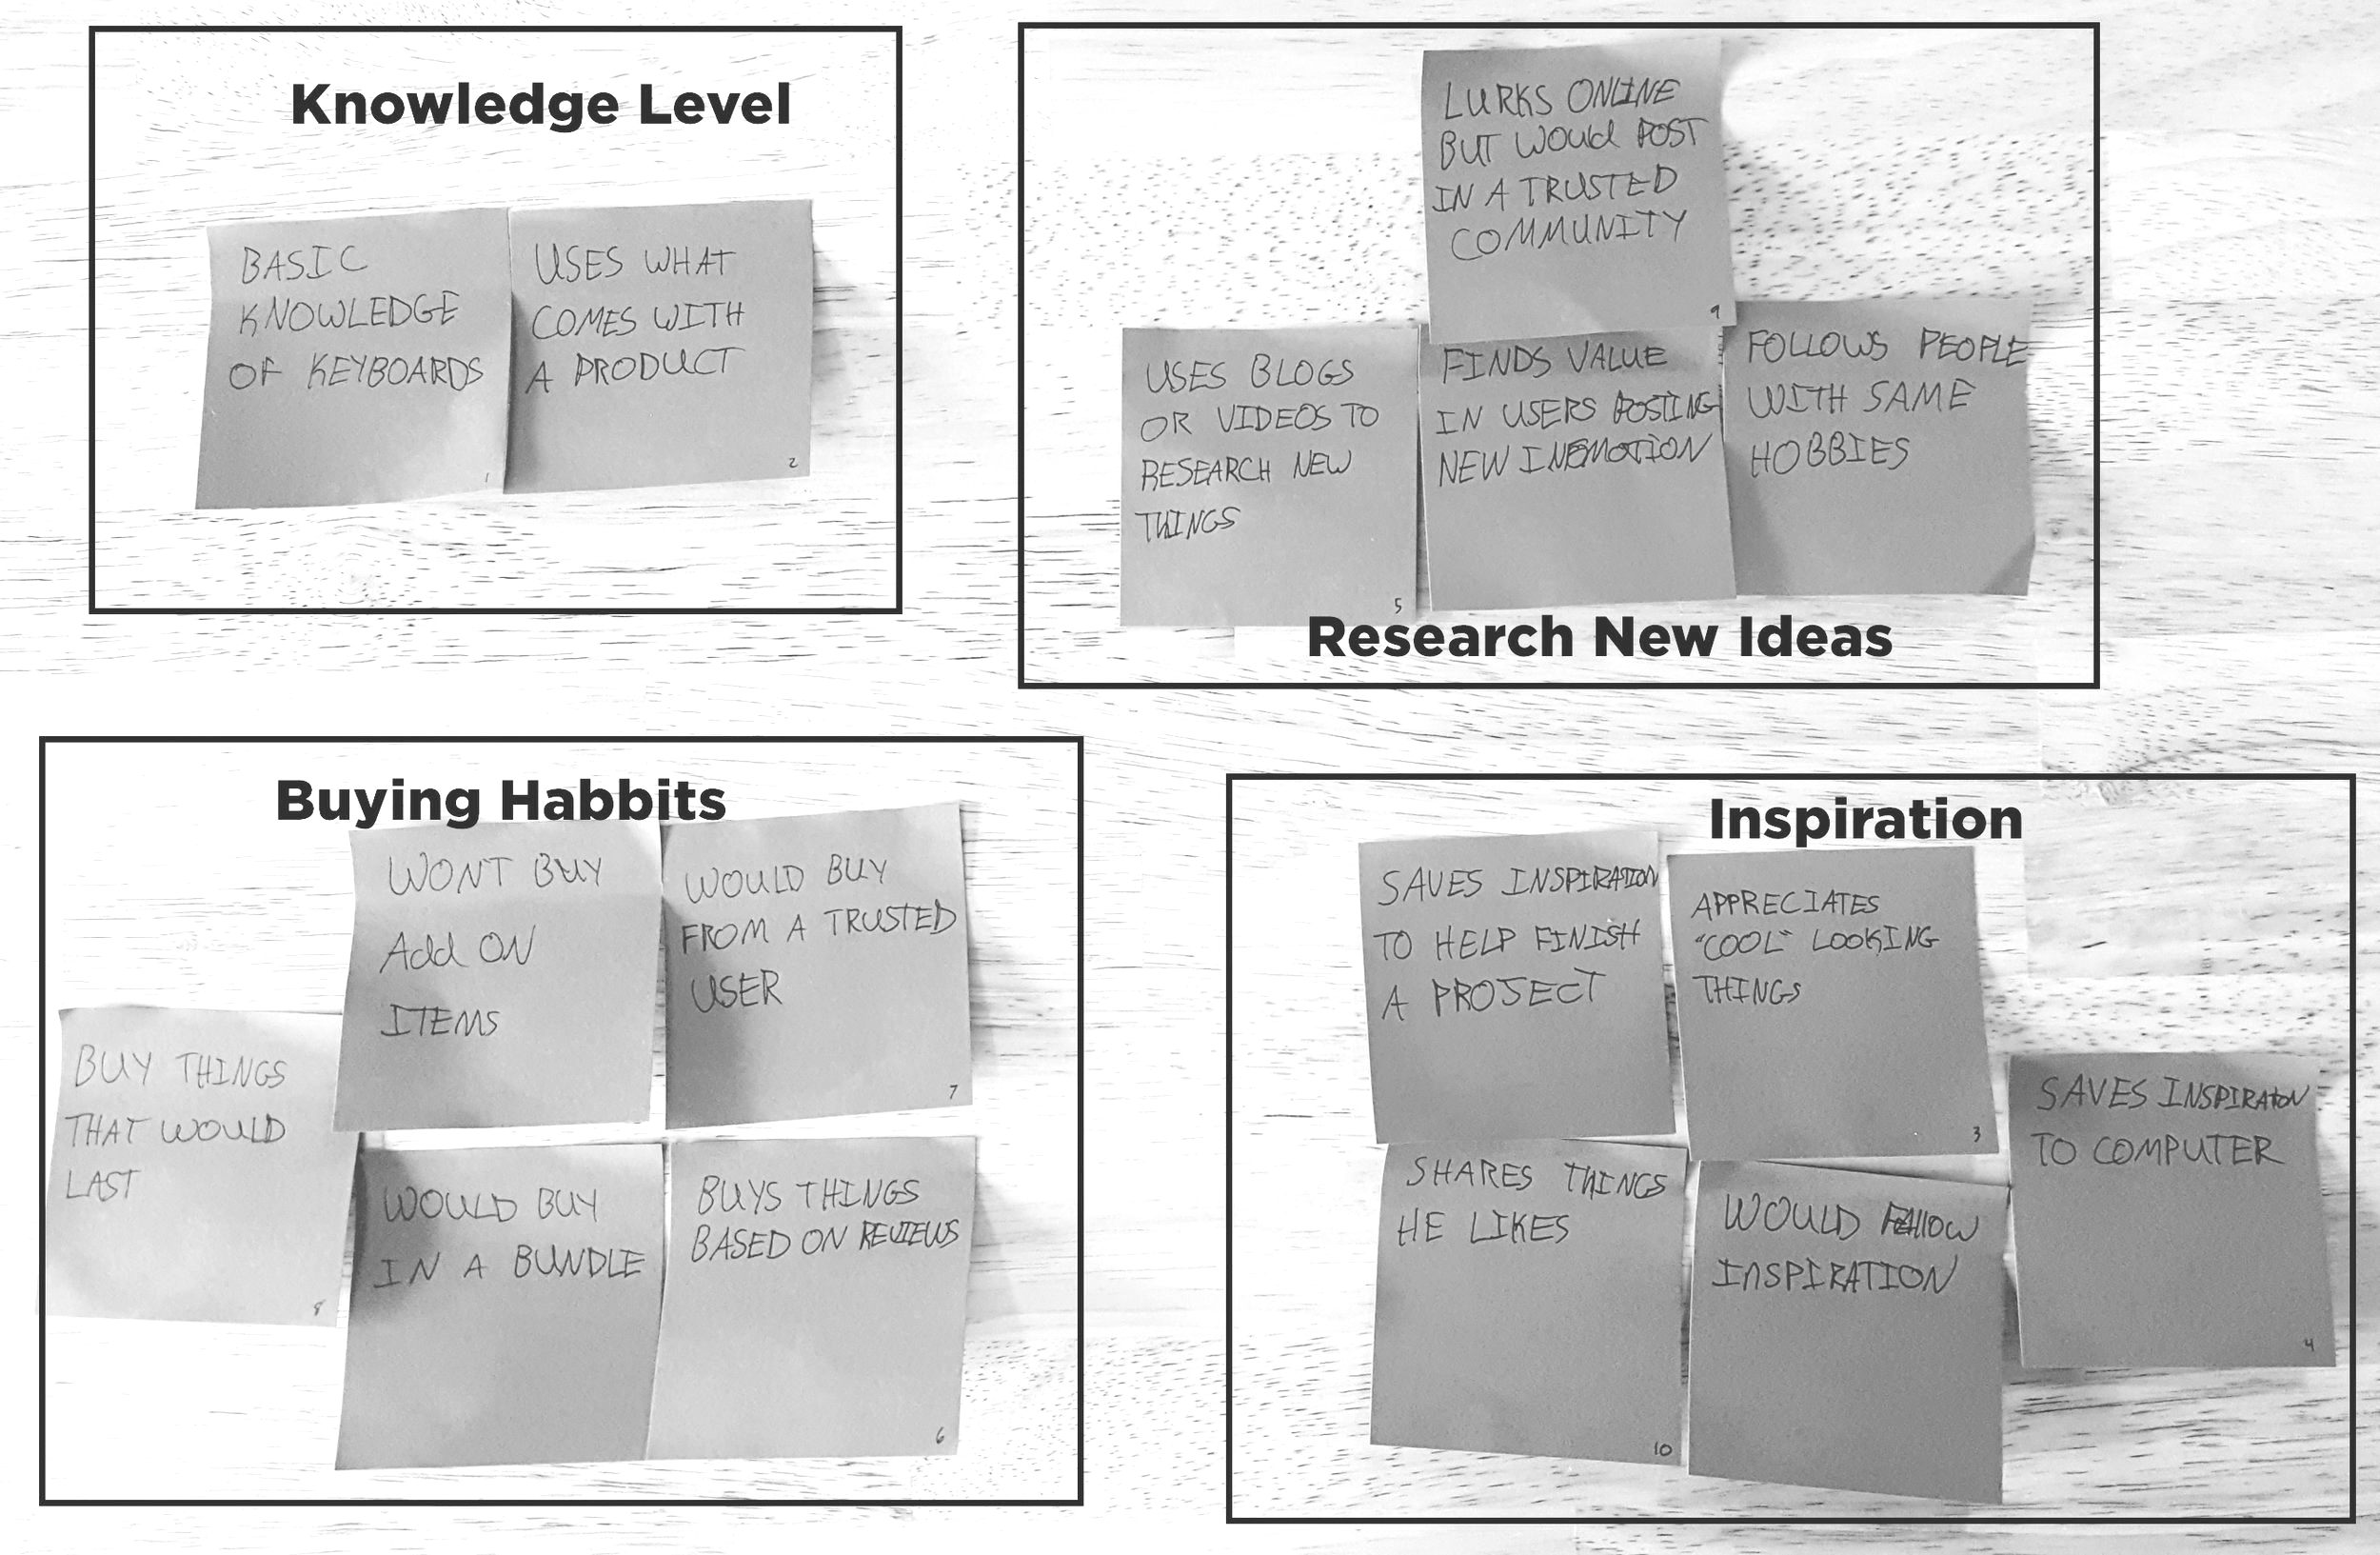 Knowledge Level
BASIC
KNOWLEDGE
OF KEYBOARDS
1
USES WHAT
COMES WITH
A PRODUCT
2
LURKS ONLINE
BUT WOULD POST
IN A TRUSTED
COMMUNITY
9
USES BLOGS
OR VIDEOS TO
RESEARCH NEW
THINGS
5
FINDS VALUE
IN USERS POSTING
NEW
FOLLOWS PEOPLE
WITH SAME
HOBBIES
Research New Ideas
Buying Habbits
WONT BUY
Add ON
ITEMS
WOULD BUY
FROM A TRUSTED
USER
7
BUY THINGS
THAT WOULD
LAST
8
WOULD BUY
IN A BUNDLE
BUYS THINGS
BASED ON REVIEWS
6
Inspiration
SAVES INSPIRATION
TO HELP FINISH
A PROJECT
APPRECIATES
"COOL" LOOKING
THINGS
3
SAVES INSPIRATION
TO COMPUTER
4
SHARES THINGS
HE LIKES
10
WOULD FOLLOW
INSPIRATION